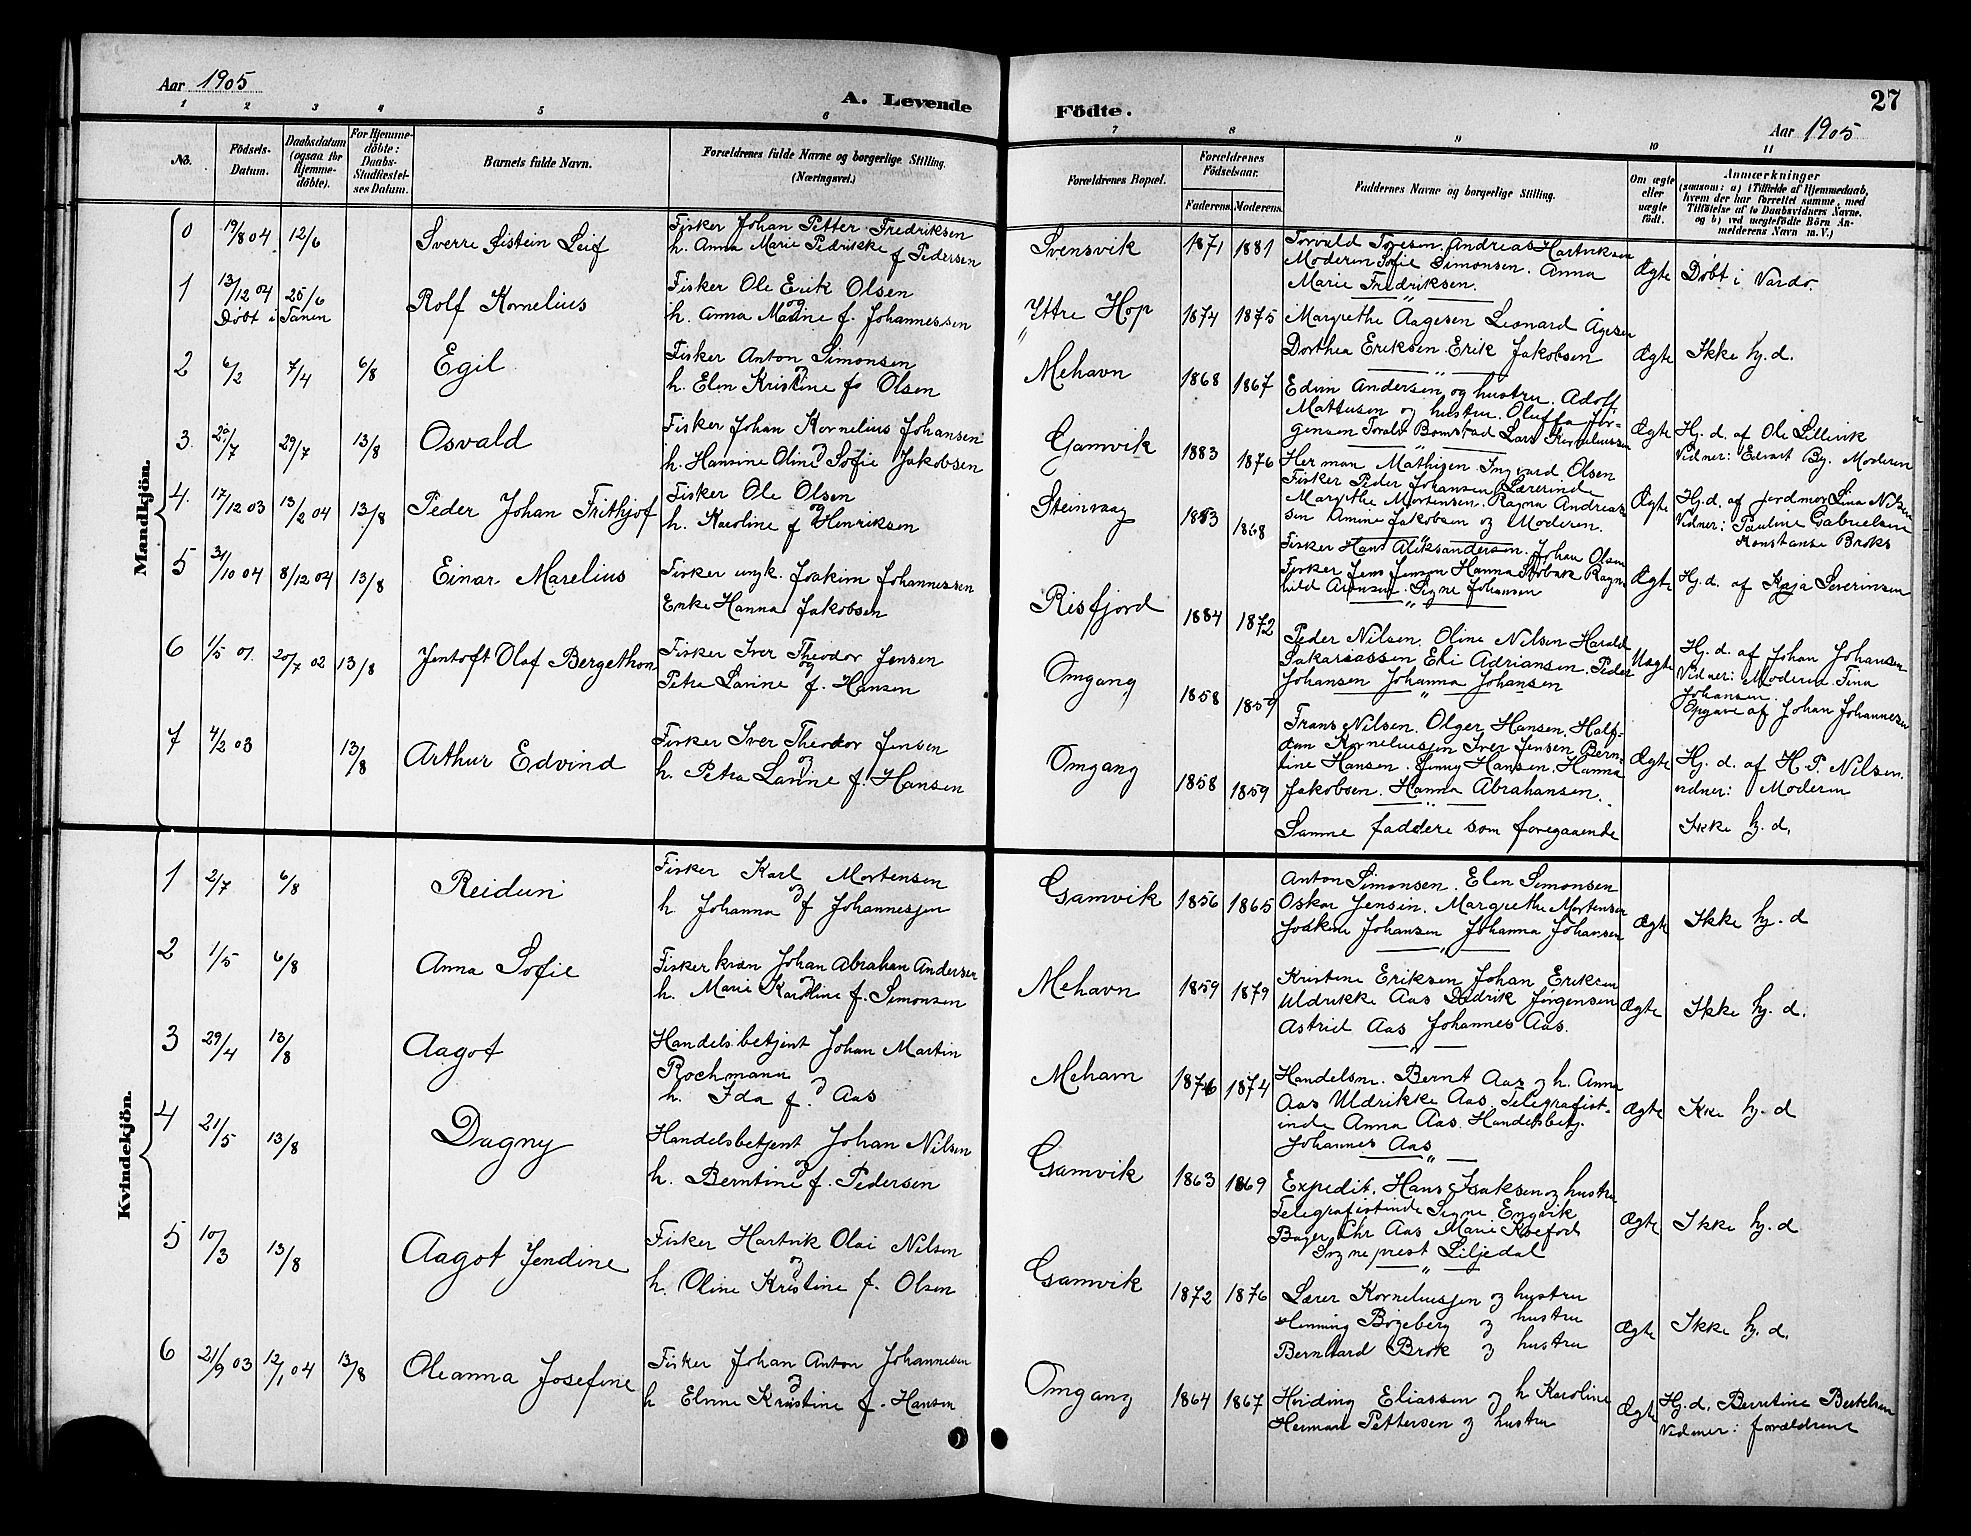 Aar 1905
A. Levende
1 2 3 4 5 6
No.
Födsels-
Datum.
Daabsdatum
(ogsaa for
Hjemme-
döbte).
For Hjemme-
döbte:
Daabs-
Stadfæstel-
ses Datum.
Barnets fulde Navn.
Forældrenes fulde Navne og borgerlige Stilling.
(Næringsvei.)
Mandkjön.
0 19/8 04 12/6 Sverre Øistein Leif
Fisker Johan Petter Fredriksen
h. Anna Marie Pedrikke f Pedersen
1 13/12 04 25/6 Rolf Kornelius
Døbt i Tanen
Fisker Ole Erik Olsen
og
h. Anna Marine f. Johannessen
2 6/2 7/4 6/8 Egil
Fisker Anton Simonsen
h. Elen Kristine f. Olsen
3. 20/7 29/7 13/8 Osvald
Fisker Johan Kornelius Johansen
og
h. Hansine Oline Sofie Jakobsen
4. 17/12 03 13/2 04 13/8 Peder Johan Frithjof
Fisker Ole Olsen
og
h. Karoline f Henriksen
5 31/10 04 8/12 04 13/8 Einar Marelius
Fisker ungk. Joakim Johannessen
Enke Hanna Jakobsen
6 1/5 01. 20/7 02 13/8 Jentoft Olaf Bergethon
Fisker Iver Theodor Jensen
og
Petra Larine f. Hansen
7 4/2 03 13/8 Arthur Edvind
Fisker Iver Theodor Jensen
og
h. Petra Larine f. Hansen
Kvindekjön.
1 2/7 6/8 Reidun
Fisker Karl Mortensen
og
h. Johanna f Johannesjen
2 1/5 6/8 Anna Sofie
Fisker kvæn Johan Abraham Andersen
h. Marie Karoline f. Simonsen
3 29/4 13/8 Aagot
Handelsbetjent Johan Martin
Rochmann
og
h. Ida f. Aas
4 21/5 13/8 Dagny
Handelsbetjent Johan Nilsen
og
h. Berntine f. Pedersen
5 10/3 13/8 Aagot Jendine
Fisker Hartvik Olai Nilsen
og
h. Oline Kristine f. Olsen
6 21/9 03 12/1 04 13/8 Oleanna Josefine
Fisker Johan Anton Johannesen
og
h Elvine Kristine f. Hansen
Födte.
27
Aar 1905
7 8 9 10 11
Forældrenes Bopæl.
Forældrenes
Födselsaar.
Faderens. Moderens.
Faddernes Navne og borgerlige Stilling.
Om ægte
eller
uægte
födt.
Anmærkninger
(saasom: a) i Tilfælde af Hjemmedaab,
hvem der har forrettet samme, med
Tilföielse af to Daabsvidners Navne.
og b) ved uægtefödte Börn An-
melderens Navn m. V.)
Svensvik 1871 1881
Torvald Toresen. Andreas Hartviksen
Moderen Sofie Simonsen. Anna
Marie Fredriksen.
Ægte Døbt i Vardø.
Yttre Hop 1874 1875
Margrethe Aagesen Leonard Ågesen
Dorthea Eriksen. Erik Jakobsen
Ægte Ikke hj. d.
Mehavn 1868 1867
Edvin Andersen og hustru. Adolf
Mattisen og hustru. Oluffa Jør-
gensen Toralf Bomstad Lars Korneliussen
Ægte Hj. d. af Ole Lillevik
Vidner: Edvart By. Moderen
Gamvik 1883 1876
Herman Mathisen Ingvard Olsen
Fisker Peder Johansen Lærerinde
Margrethe Mortensen. Ragna Andreas-
sen Amine Jakobsen og Moderen.
Ægte Hj. d. af jordmor Lina Nilsen
Vidner: Pauline Gabrielsen
Konstanse Broks
Steinvaag 1883 1868
Fisker Hans Aleksandersen. Johan Olsen
Fisker Jens Jensen Hanna Sørbak Ragn-
hild Aronsen. Signe Johansen
Ægte Hj. d. af Kaja Severinsen
Risfjord 1884 1872
Peder Nilsen. Oline Nilsen Harald
Sakariassen Eli Adriansen. Peder
Johansen Johanna Johansen
Uægte Hj. d. af Johan Johansen
Vidner: Moderen. Fina
Johansen.
Opgave af Johan Johannesen
Omgang 1858 1859
Frans Nilsen. Olger Hansen. Half-
dan Korneliussen Iver Jensen Bern-
tine Hansen. Jenny Hansen. Hanna
Jakobsen. Hanna Abrahansen.
Ægte Hj. d. af H. P. Nilsen.
vidner: Moderen
Omgang 1858 1859
Samme faddere som foregaaende
Ikke hj. d.
Gamvik 1856 1865
Anton Simonsen. Elen Simonsen
Oskar Jensen. Margrethe Mortensen
Joakim Johansen Johanna Johansen
Ægte Ikke hj. d
Mehavn 1859 1879
Kristine Eriksen Johan Eriksen
Uldrikke Aas Didrik Jørgensen
Astrid Aas Johannes Aas.
Ægte Ikke hj. d.
Mehavn 1876 1874
Handelsm. Bernt Aas og h. Anna
Aas Uldrikke Aas. Telegrafist-
inde Anna Aas. Handelsbetj.
Johannes Aas
Ægte Ikke hj. d
Gamvik 1863 1869
Expedit. Hans Isaksen og hustru
Telegrafistinde Signe Engvik
Bager Chr Aas Marie Koefod
Sogneprest Liljedal
Ægte Ikke hj. d
Gamvik 1872 1876
Lærer Korneliusjen og hustru
Henning Bøgeberg og hustru
Bernhard Brok og hustru
Ægte Ikke hj. d.
Omgang 1864 1867
Heiding Eliassen og h Karoline
Herman Pettersen og hustru
Ægte Hj. d. Berntine Bertelsen
Vidner: forældrene